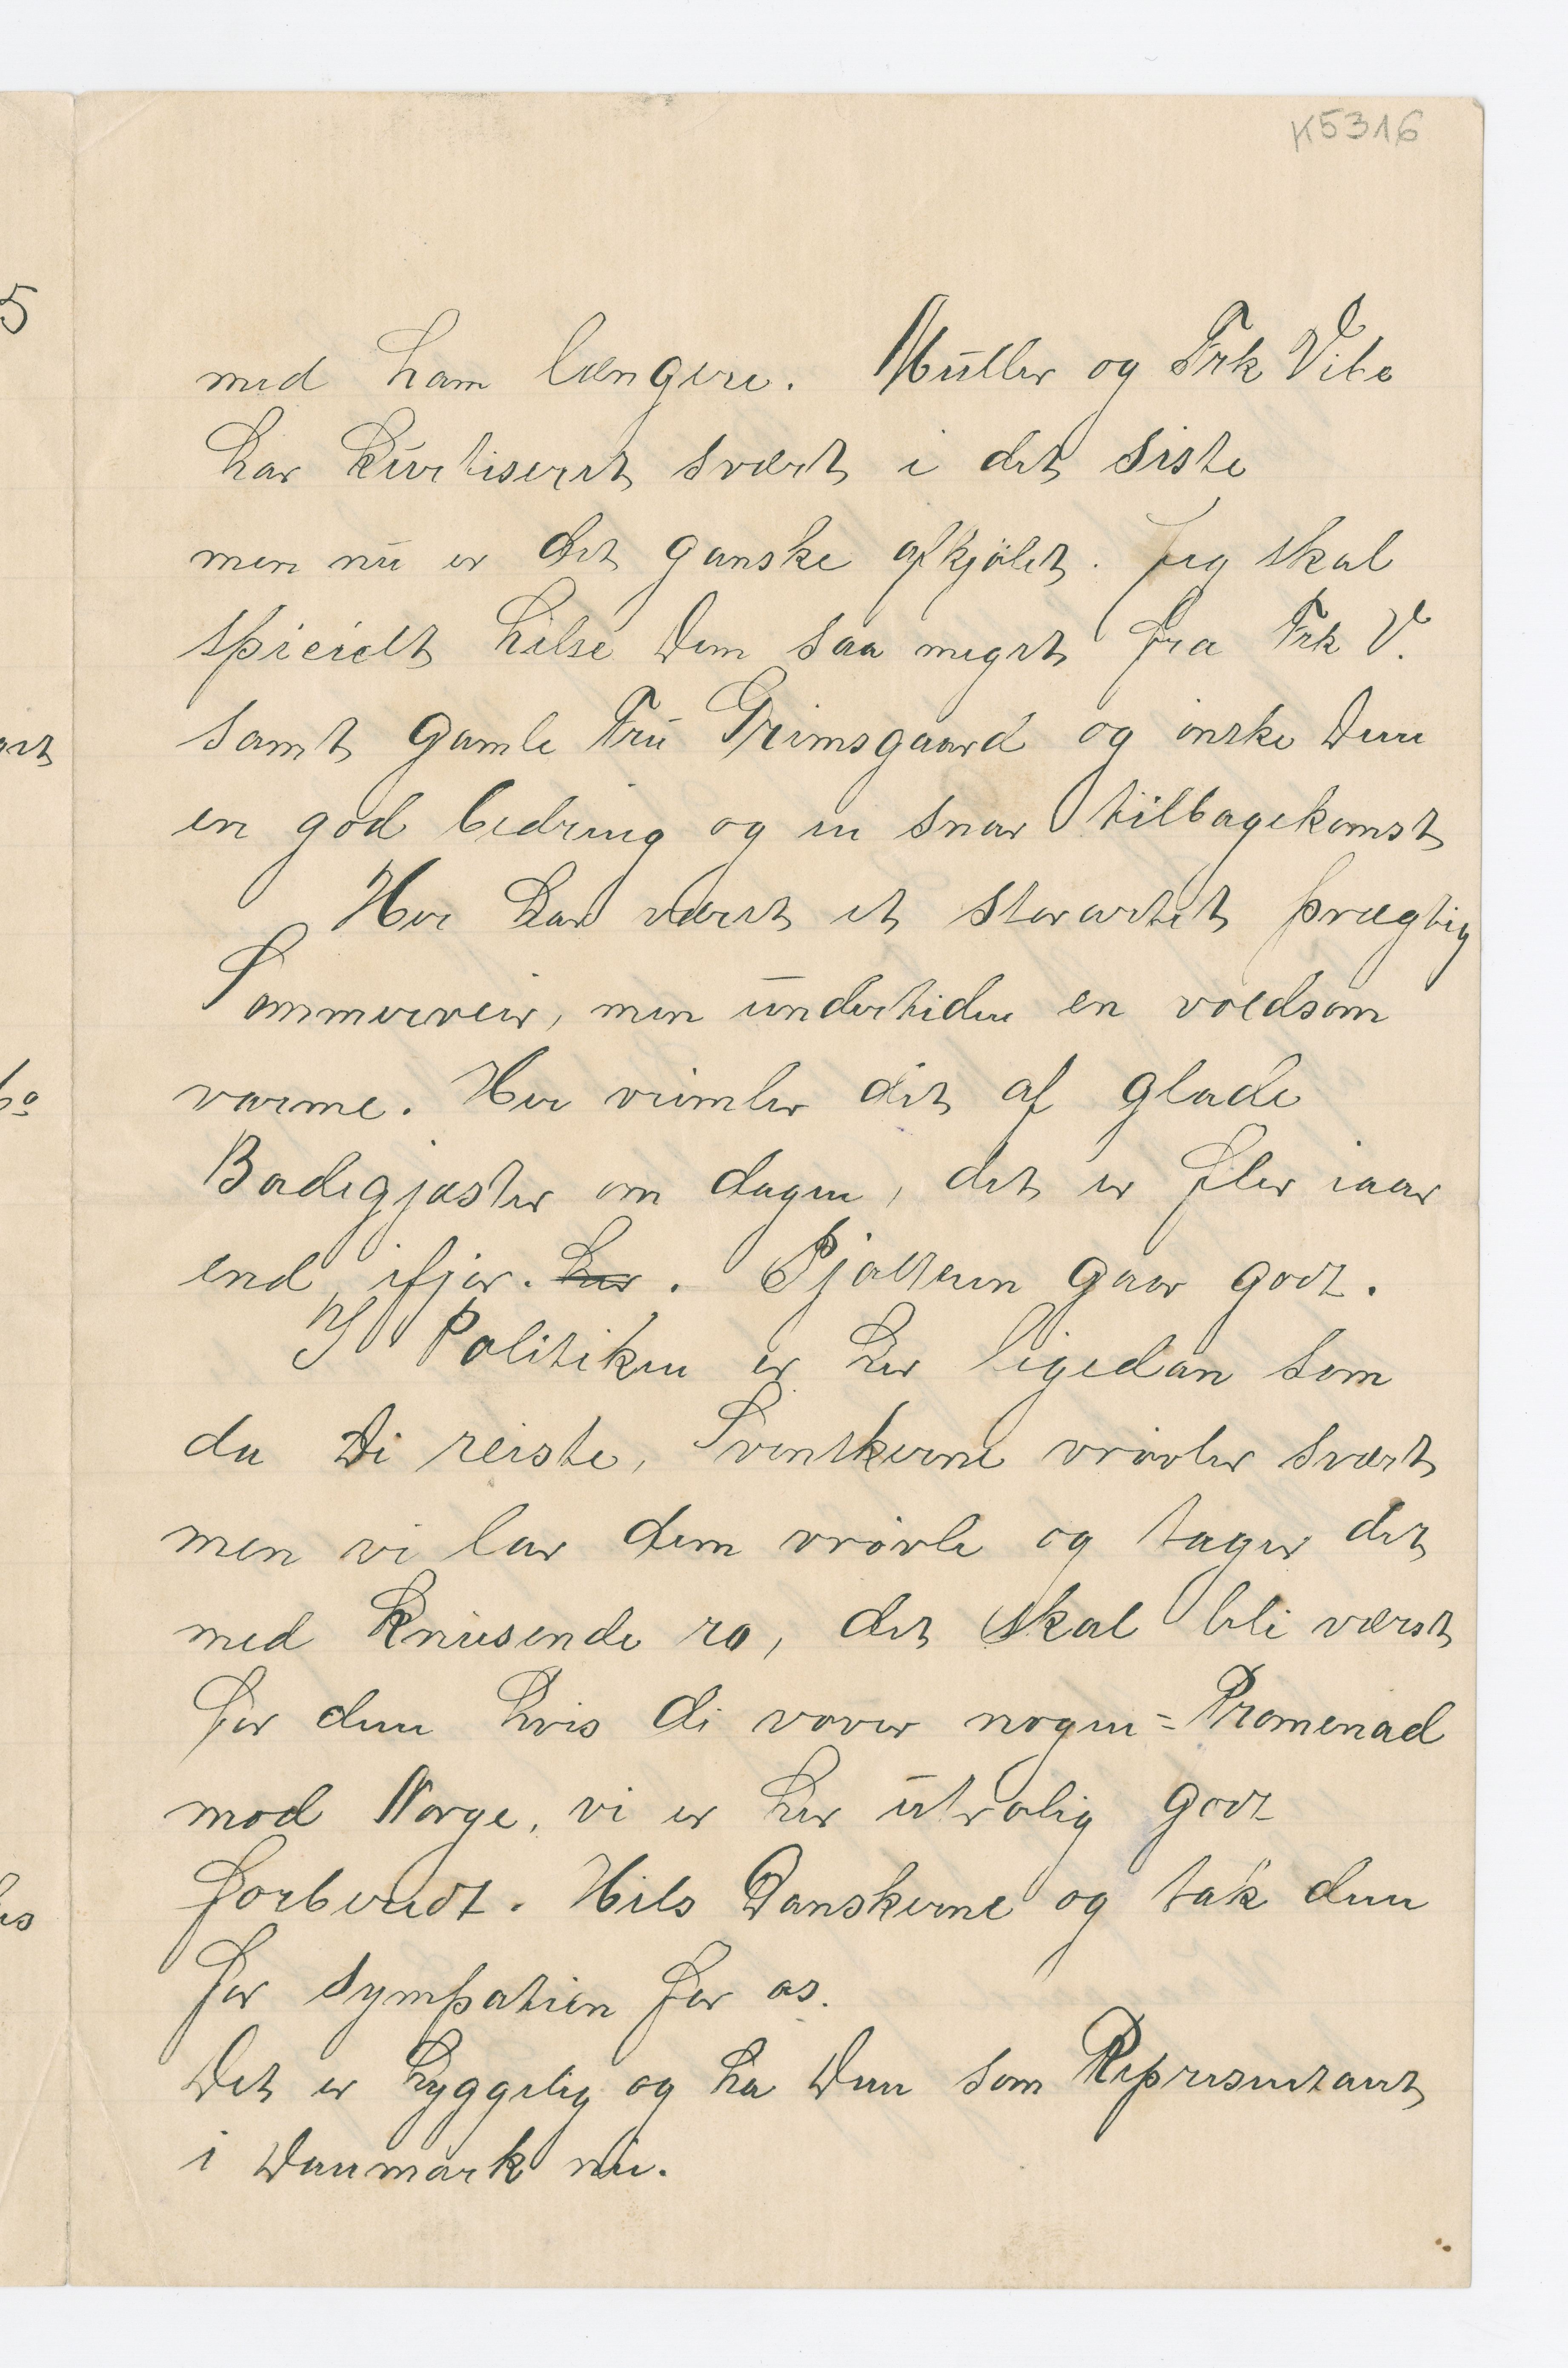 K5316
med ham længere. Müller og Frk Vibe
har kurtiseret svært i det siste
men nu er det ganske afkjølet. Jeg skal
specielt hilse Dem saa meget fra Frk V.
samt gamle Fru Grimsgaard og ønske Dem
en god bedring og en snar tilbagekomst
Her har været et storartet prægtig
Sommerveir, men undertiden en voldsom
varme. Her vrimler det af glade
Badegjæster om dagen, det er fler iaar
end ifjor. her. Pjolteren gaar godt.
I Politiken er her ligedan som
da De reiste, Svenskerne vrøvler svært
men vi lar dem vrøvle og tager det
med knusende ro, det skal bli værst
for dem hvis de vover nogen = Promenad
mod Norge, vi er her utrolig godt
forberedt. Hils Danskerne og tak dem
for sympatien for os.
Det er hyggelig og ha Dem som Representant
i Danmark nu.